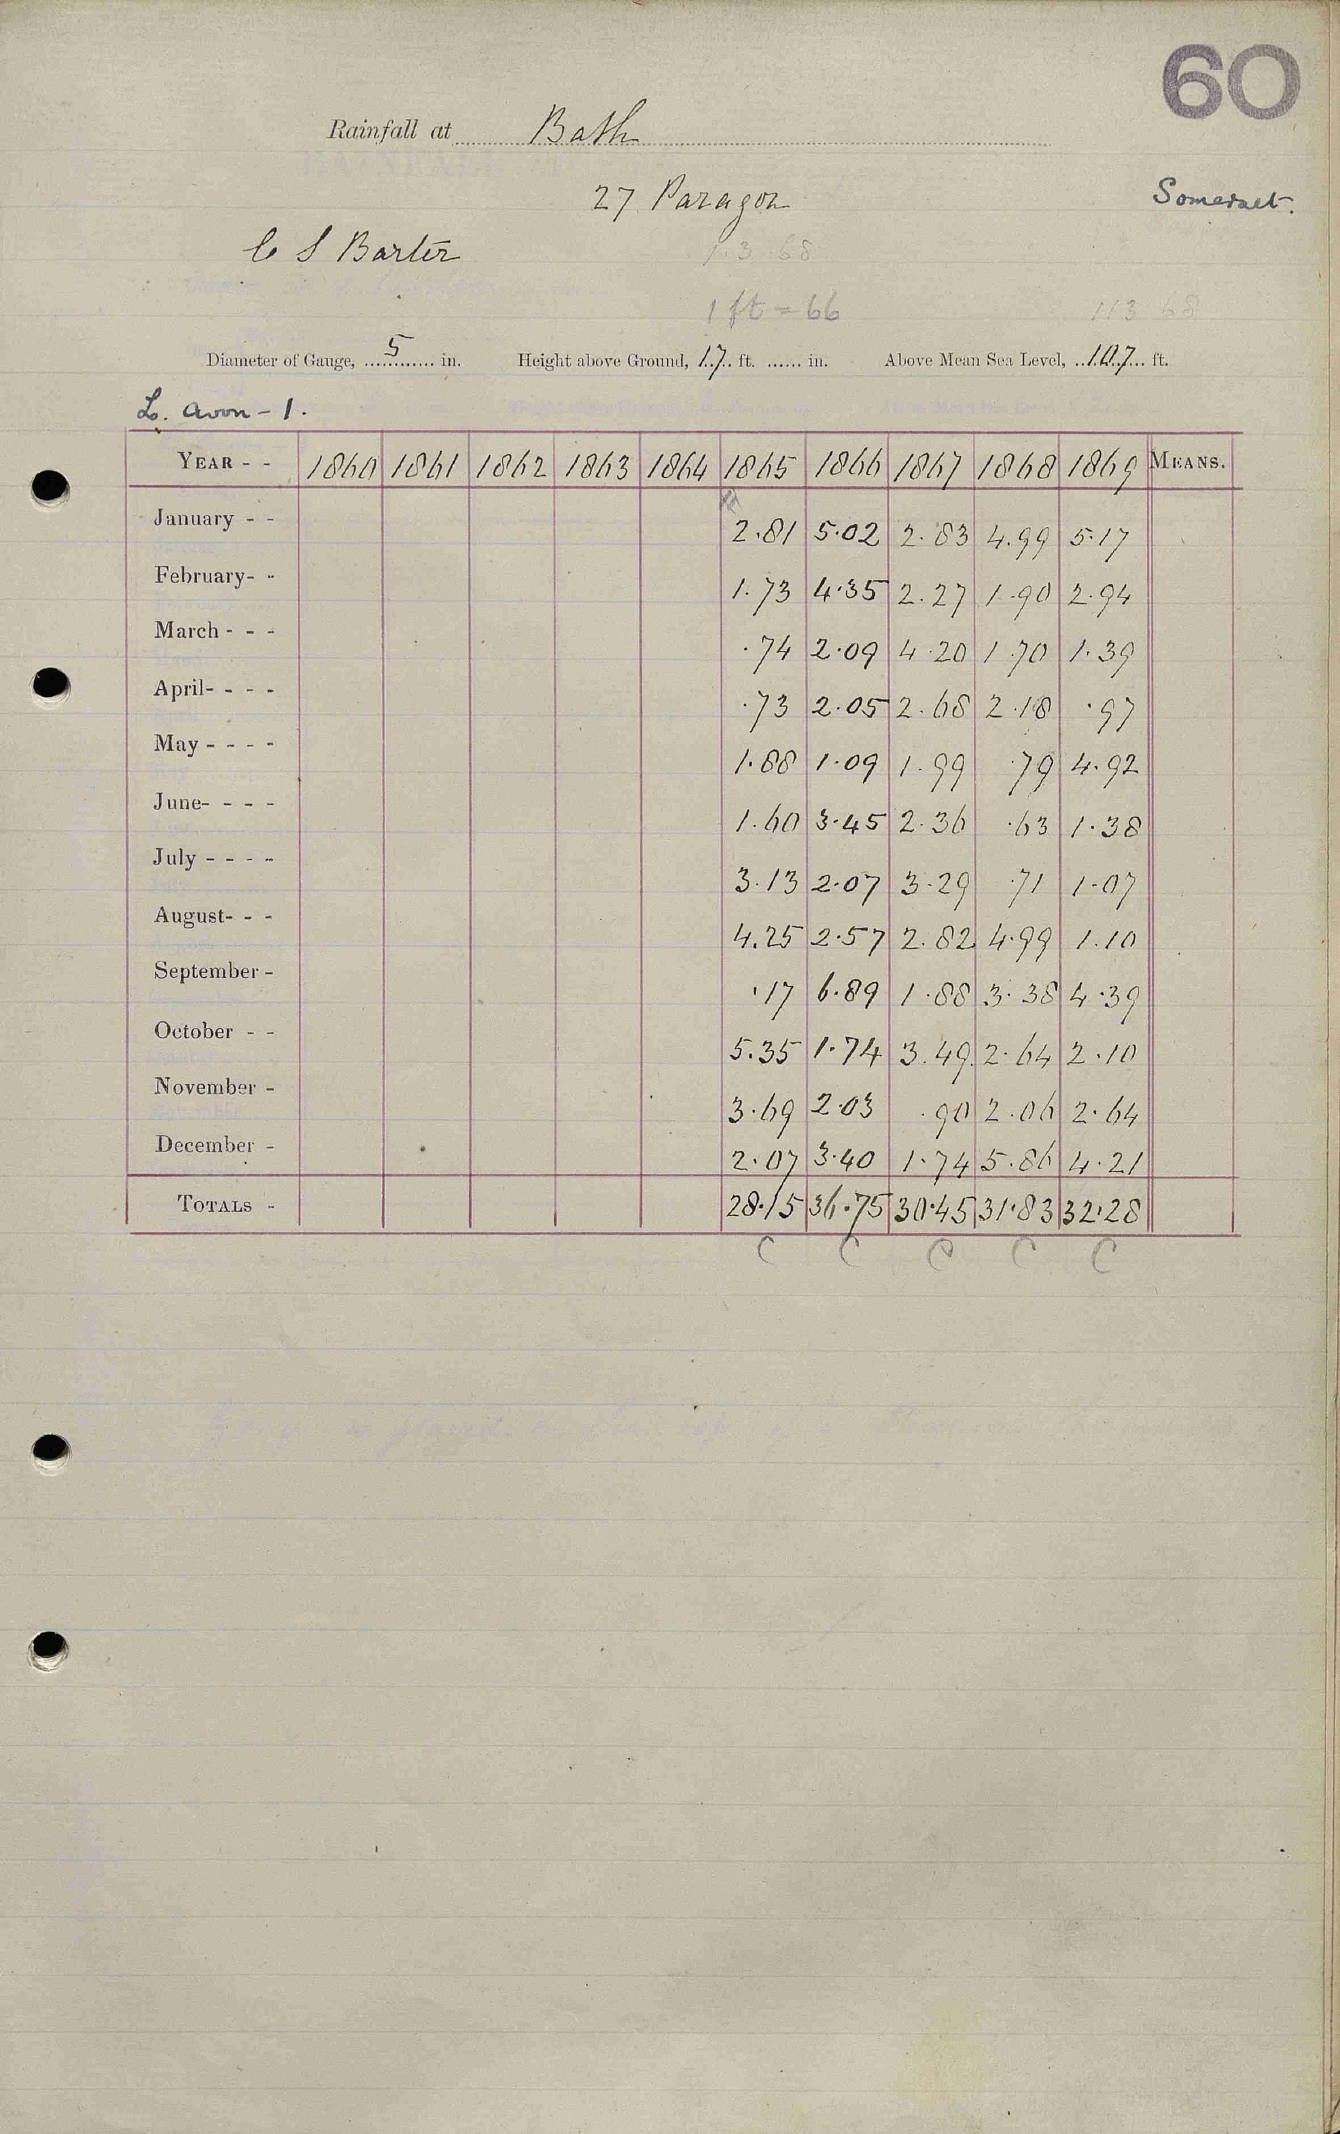 60
Rainfall at Bath
27 Paragon
Somerset.
C S Barter
1·3·68
1 ft = 66
113 68
Diameter of Gauge, 5 in. Height above Ground, 17 ft. ...... in. Above Mean Sea Level, 107 ft.
L. Avon - 1.
YEAR - - 1860 1861 1862 1863 1864 1865 1866 1867 1868 1869 MEANS.
January - - 2.81 5.02 2.83 4.99 5.17
February- - 1.73 4.35 2.27 1.90 2.94
March - - - .74 2.09 4.20 1.70 1.39
April- - - - .73 2.05 2.68 2.18 .97
May - - - - 1.88 1.09 1.99 .79 4.92
June- - - - 1.60 3.45 2.36 .63 1.38
July - - - - 3.13 2.07 3.29 .71 1.07
August- - - 4.25 2.57 2.82 4.99 1.10
September - .17 6.89 1.88 3.38 4.39
October - - 5.35 1.74 3.49 2.64 2.10
November - 3.69 2.03 .90 2.06 2.64
December - 2.07 3.40 1.74 5.86 4.21
TOTALS - 28.15 36.75 30.45 31.83 32.28
C C C C C